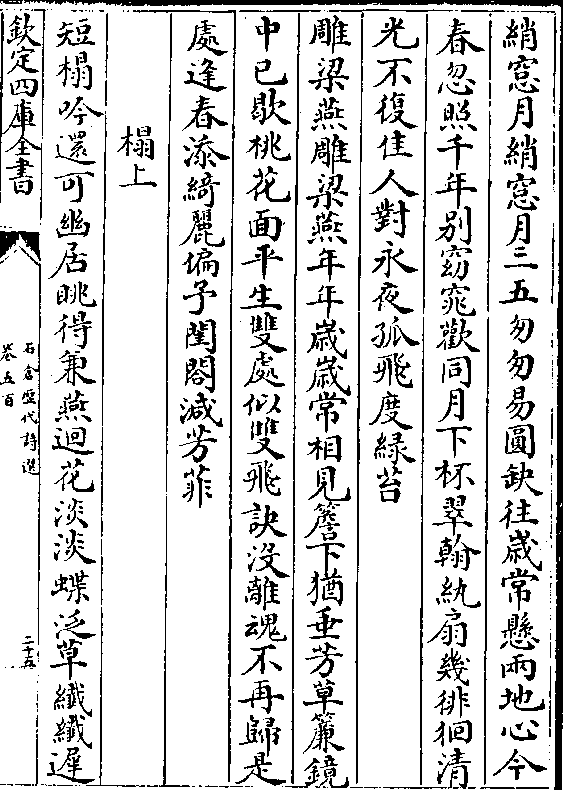 綃窓月綃窓月三五匆匆易圓缺往歳常懸兩地心今
春忽照千年别窈窕歡同月下杯翠翰紈扇幾徘徊清
光不復佳人對永夜孤飛度緑苔
雕梁燕雕梁燕年年歳歳常相見簷下猶垂芳草簾鏡
中已歇桃花面平生雙處似雙飛訣没離魂不再歸是
處逢春添綺麗偏予閨閣減芳菲
榻上
短榻吟還可幽居眺得兼燕迴花淡淡蝶泛草纖纖遲
欽定四庫全書
石倉歴代詩選
卷五百
二十五